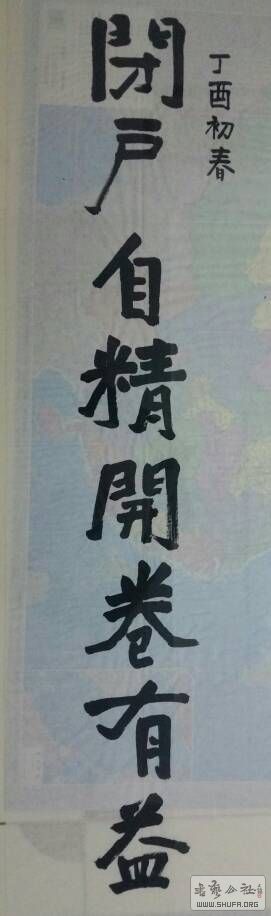 丁酉初春
閉戶自精開卷有益
书艺公社
WWW.SHUFA.ORG